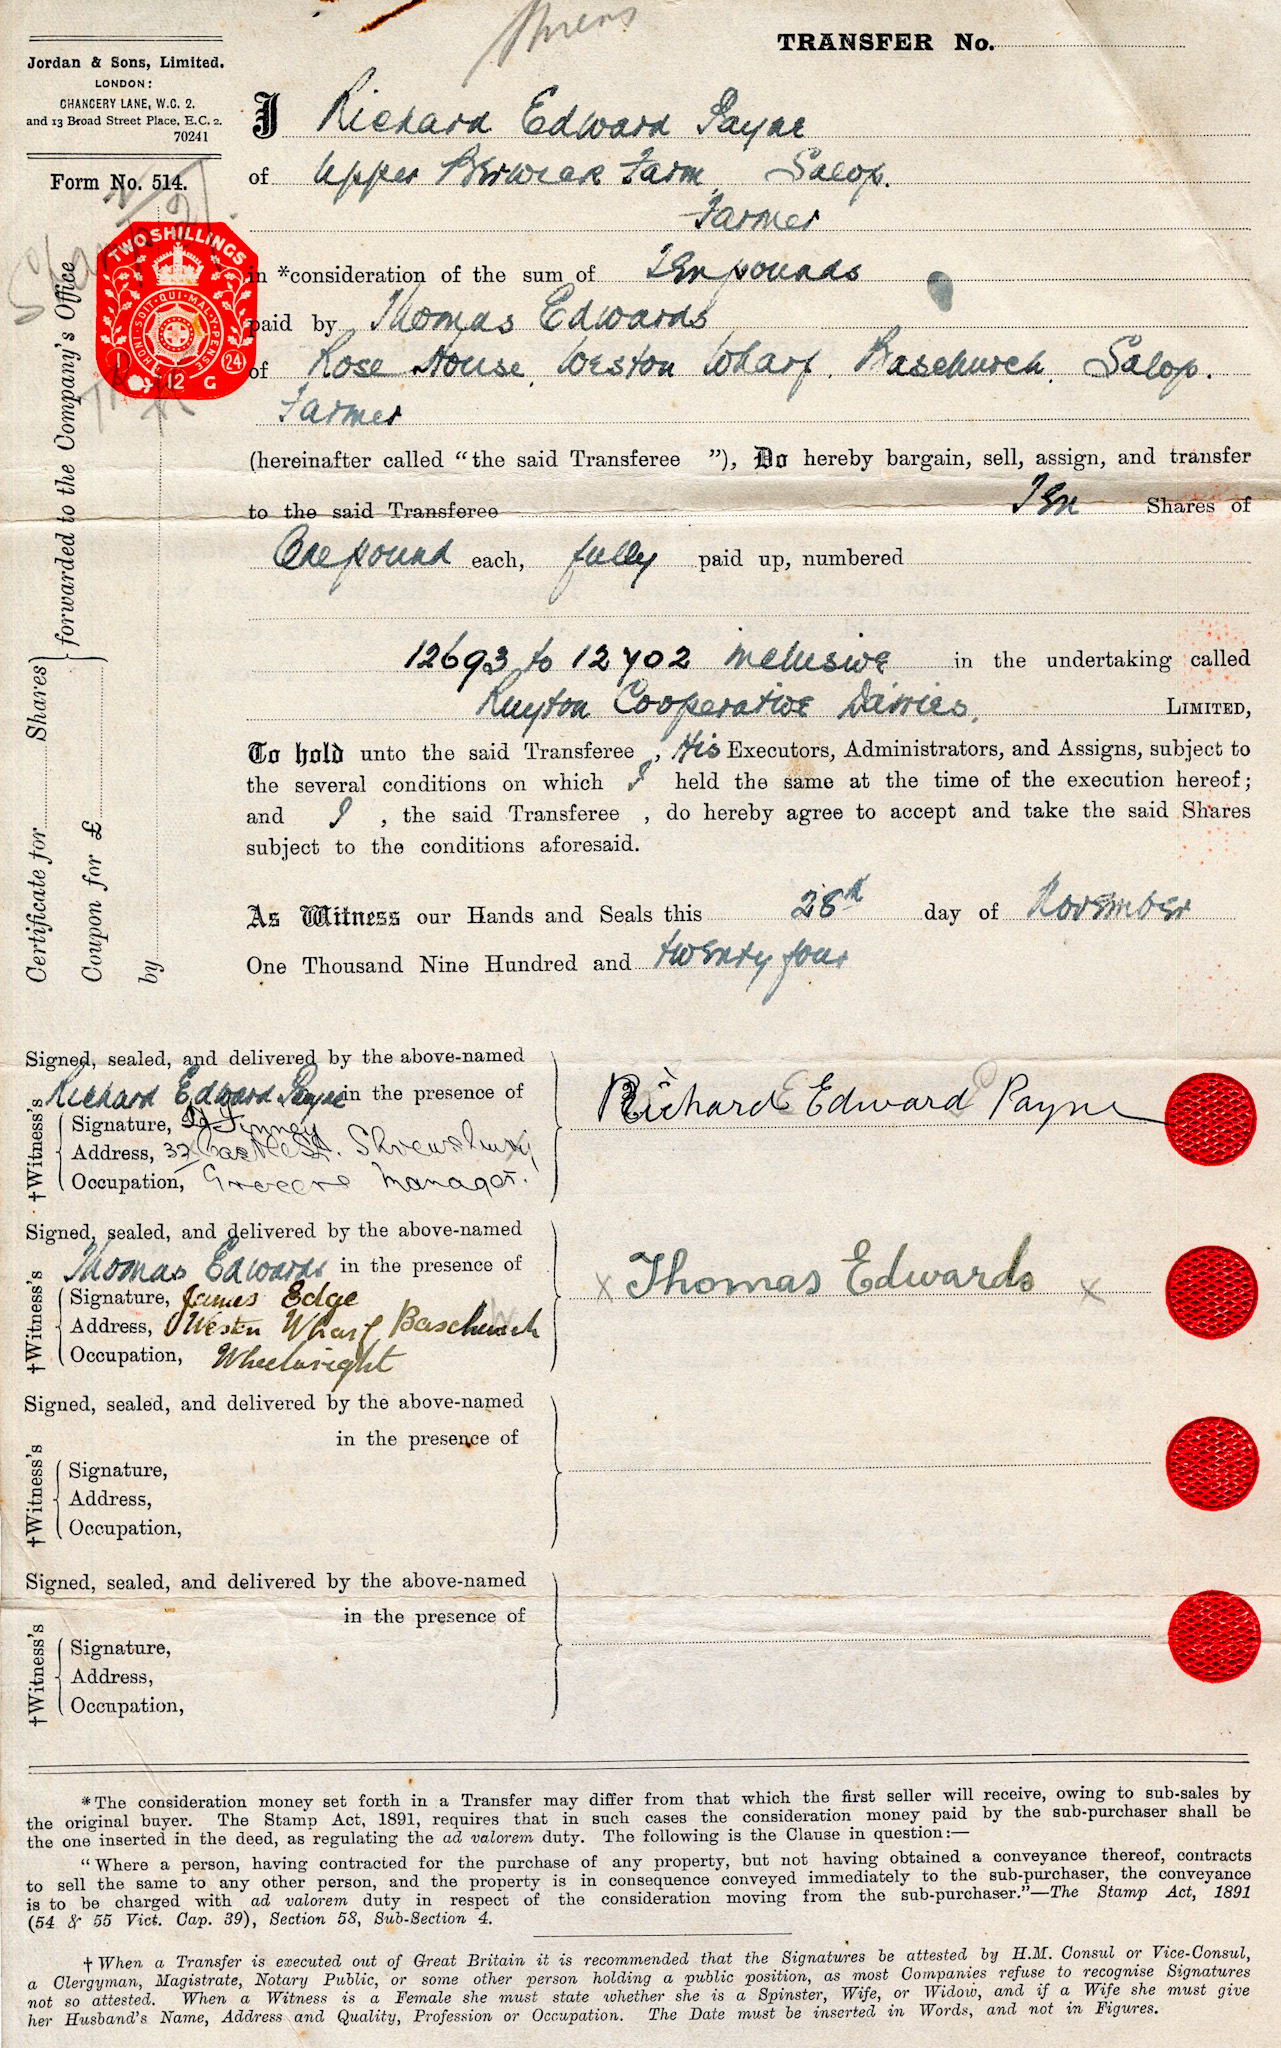 TRANSFER No.
Jordan & Sons, Limited.
LONDON:
CHANCERY LANE, W.C. 2.
and 13 Broad Street Place, E.C. 2.
70241
Form No. 514.
TWO SHILLINGS
HONI·SOIT·QUI·MAL·Y·PENSE
24
12 G
Certificate for Shares
Coupon for £
forwarded to the Company's Office
by
I Richard Edward Payne
of Upper Berwick Farm, Salop.
Farmer
in *consideration of the sum of Ten pounds
paid by Thomas Edwards
of Rose House, Weston Wharf, Baschurch, Salop.
Farmer
(hereinafter called "the said Transferee "), Do hereby bargain, sell, assign, and transfer
to the said Transferee Ten Shares of
One pound each, fully paid up, numbered
12693 to 12702 inclusive in the undertaking called
Ruyton Cooperative Dairies, LIMITED,
To hold unto the said Transferee , His Executors, Administrators, and Assigns, subject to
the several conditions on which I held the same at the time of the execution hereof;
and I , the said Transferee , do hereby agree to accept and take the said Shares
subject to the conditions aforesaid.
As Witness our Hands and Seals this 28th day of November
One Thousand Nine Hundred and twenty four
Signed, sealed, and delivered by the above-named
Richard Edward Payne in the presence of
†Witness's
Signature, Finney
Address, 32 Castle St. Shrewsbury
Occupation, Grocers Manager.
Richard Edward Payne
Signed, sealed, and delivered by the above-named
Thomas Edwards in the presence of
†Witness's
Signature, James Edge
Address, Westn Wharf Baschurch
Occupation, Wheelwright
x Thomas Edwards x
Signed, sealed, and delivered by the above-named
in the presence of
†Witness's
Signature,
Address,
Occupation,
Signed, sealed, and delivered by the above-named
in the presence of
†Witness's
Signature,
Address,
Occupation,
*The consideration money set forth in a Transfer may differ from that which the first seller will receive, owing to sub-sales by
the original buyer. The Stamp Act, 1891, requires that in such cases the consideration money paid by the sub-purchaser shall be
the one inserted in the deed, as regulating the ad valorem duty. The following is the Clause in question:—
"Where a person, having contracted for the purchase of any property, but not having obtained a conveyance thereof, contracts
to sell the same to any other person, and the property is in consequence conveyed immediately to the sub-purchaser, the conveyance
is to be charged with ad valorem duty in respect of the consideration moving from the sub-purchaser."—The Stamp Act, 1891
(54 & 55 Vict. Cap. 39), Section 58, Sub-Section 4.
† When a Transfer is executed out of Great Britain it is recommended that the Signatures be attested by H.M. Consul or Vice-Consul,
a Clergyman, Magistrate, Notary Public, or some other person holding a public position, as most Companies refuse to recognise Signatures
not so attested. When a Witness is a Female she must state whether she is a Spinster, Wife, or Widow, and if a Wife she must give
her Husband's Name, Address and Quality, Profession or Occupation. The Date must be inserted in Words, and not in Figures.